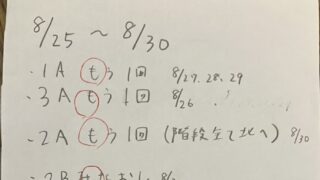 8/25 〜 8/30
・1A もう1回 8/27.28.29
・3A もう1回 8/26
・2A もう1回 (階段全て地へ) 8/30
・2B みなおし 8/